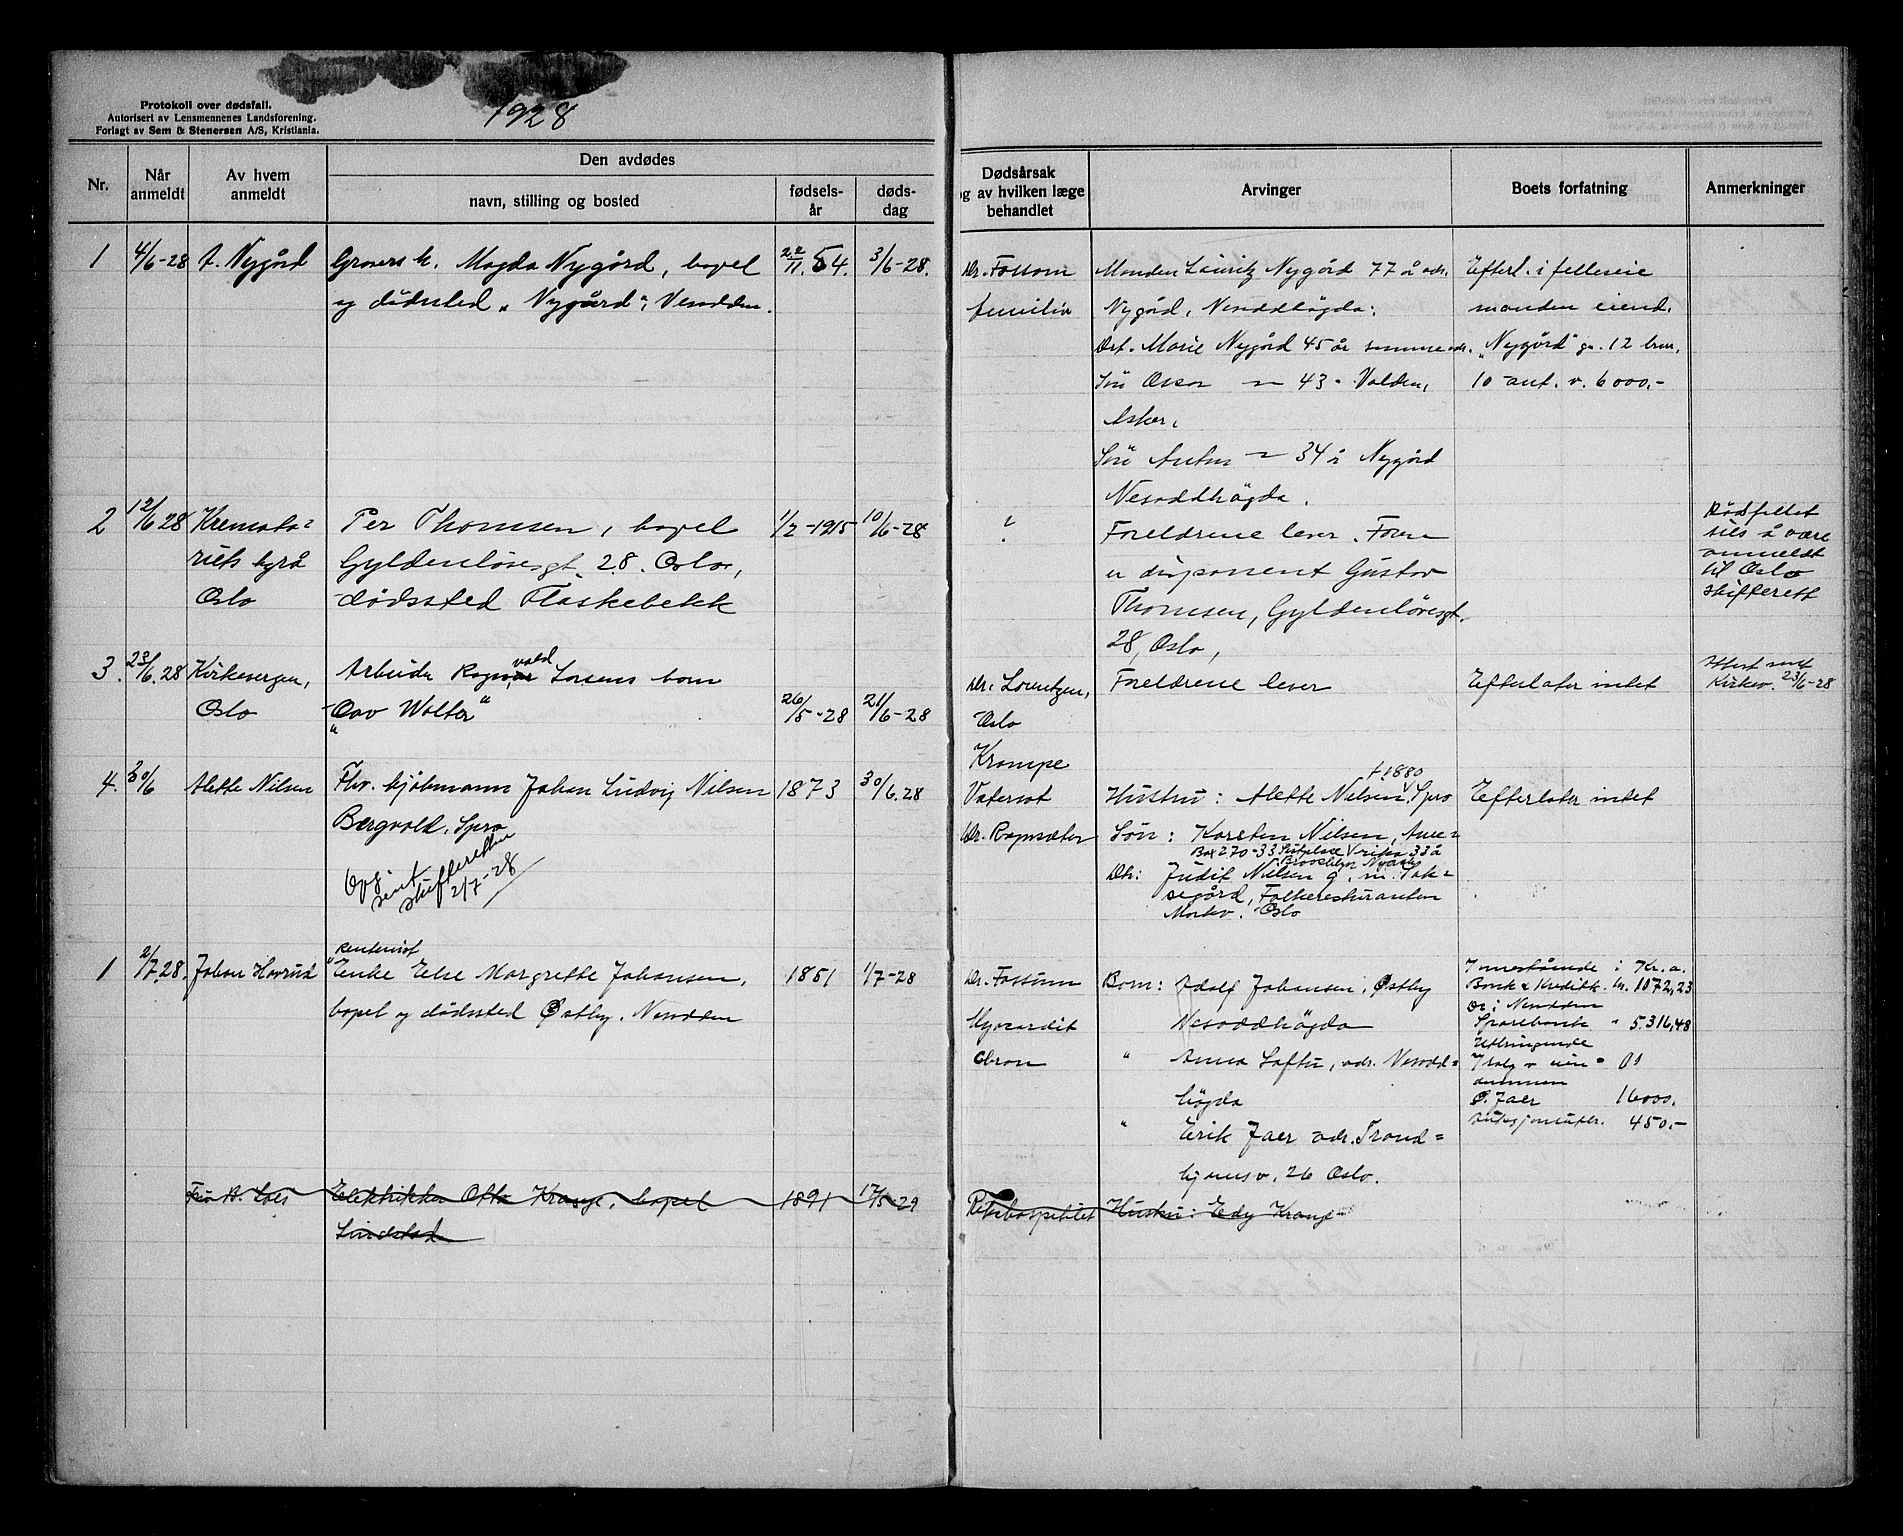 Protokoll over dødsfall.
Autorisert av Lensmennenes Landsforening.
Forlagt av Sem & Stenersen A/S, Kristiania.
1928
Nr.
Når anmeldt
Av hvem anmeldt
Den avdødes
navn, stilling og bosted
fødsels-år
døds-dag
Dødsårsak
og av hvilken læge
behandlet
Arvinger
Boets forfatning
Anmerkninger
1 4/6-28 A. Nygård
Magda Nygård, bopel
og dødssted "Nygård",
22/11. 54. 3/6-28.
Dr. Fossum
Manden Lauritz Nygård 77 å adr.
Nygård, Nesoddhögda.
Dtr. Marie Nygård 45 år samme adr.
Sön Oscar — 43 " Valden,
Asker.
Sön Anton — 34 å Nygård
Nesoddhögda.
Efterl. i felleseie
manden eiend.
"Nygård" g. 12 brn.
10 ant. v. 6000.-
2 12/6 28 Kremato=
riets byrå
Oslo
Per Thomsen, bopel
Gyldenlövesgt. 28. Oslo,
dödssted Flaskebekk
1/2-1915 10/6-28
?
Foreldrene lever. Faren
er disponent Gustav
Thomsen, Gyldenlövesgt.
28, Oslo,
Dödsfallet
sies å være
anmeldt
til Oslo
skifterett
3. 23/6.28 Kirkevergen,
Oslo
Arbeider Ragnvald Larsens barn
"Odv Walter"
26/5-28 21/6-28
Dr. Lorentzen,
Oslo
Krampe
Foreldrene lever
Efterlater intet
Attest sent
Kirkev. 23/6-28
4. 30/6 Alette Nilsen
Fhv. kjöbmann Johan Ludvig Nilsen
Bergvold, Spro
Opg. sent
skifteretten
2/7-28
1873 30/6.28
Vatersot
Dr. Ragnsæter
f. 1880
Hustru: Alette Nilsen, Spro
Sön: Karsten Nilsen, Ame=
rika 33 å
Box 270-33
Dtr: Judit Nilsen g. m.
Folkerestauranten
Oslo
Efterlater intet
1 2/7.28. Johan Havrud
Rentenist
Enke Else Margrethe Johansen,
bopel og dødssted Østby. Nesodden
1851 1/7-28
Dr. Fossum
Myocardit
chron
Barn: Adolf Johansen, Østby
Nesoddhögda
" Anna Loftu, adr. Nesodd=
högda
" Erik Jaer adr. Trond=
hjemsv. 26 Oslo.
Innestående i Kr.a.
Bank & Kreditk. kr. 1072,23
Do i Nesodden
Sparebank " 5.316,48
Utbringende
Ø. Jaer 16000.
Auksjonsutbr. 450.-
Elektriker Otto Krange, bopel
Lindstad
1891 12/5-29
Rikshospitalet Hustru: Edy Krange